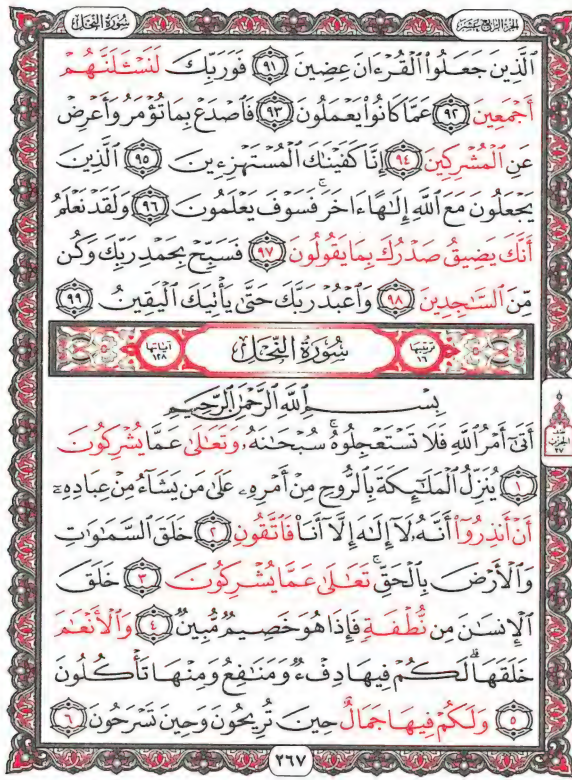 سُورَةُ النَّحْلِ
الجُزْءُ الرَّابِعَ عَشَرَ
ٱلَّذِينَ جَعَلُوا۟ ٱلْقُرْءَانَ عِضِينَ ٩١ فَوَرَبِّكَ لَنَسْـَٔلَنَّهُمْ
أَجْمَعِينَ ٩٢ عَمَّا كَانُوا۟ يَعْمَلُونَ ٩٣ فَٱصْدَعْ بِمَا تُؤْمَرُ وَأَعْرِضْ
عَنِ ٱلْمُشْرِكِينَ ٩٤ إِنَّا كَفَيْنَٰكَ ٱلْمُسْتَهْزِءِينَ ٩٥ ٱلَّذِينَ
يَجْعَلُونَ مَعَ ٱللَّهِ إِلَٰهًا ءَاخَرَ ۚ فَسَوْفَ يَعْلَمُونَ ٩٦ وَلَقَدْ نَعْلَمُ
أَنَّكَ يَضِيقُ صَدْرُكَ بِمَا يَقُولُونَ ٩٧ فَسَبِّحْ بِحَمْدِ رَبِّكَ وَكُن
مِّنَ ٱلسَّٰجِدِينَ ٩٨ وَٱعْبُدْ رَبَّكَ حَتَّىٰ يَأْتِيَكَ ٱلْيَقِينُ ٩٩
ترتيبها ١٦ سُورَةُ النَّحْلِ آياتها ١٢٨
بِسْمِ ٱللَّهِ ٱلرَّحْمَٰنِ ٱلرَّحِيمِ
أَتَىٰٓ أَمْرُ ٱللَّهِ فَلَا تَسْتَعْجِلُوهُ ۚ سُبْحَٰنَهُۥ وَتَعَٰلَىٰ عَمَّا يُشْرِكُونَ
١ يُنَزِّلُ ٱلْمَلَٰٓئِكَةَ بِٱلرُّوحِ مِنْ أَمْرِهِۦ عَلَىٰ مَن يَشَآءُ مِنْ عِبَادِهِۦٓ
أَنْ أَنذِرُوٓا۟ أَنَّهُۥ لَآ إِلَٰهَ إِلَّآ أَنَا۠ فَٱتَّقُونِ ٢ خَلَقَ ٱلسَّمَٰوَٰتِ
وَٱلْأَرْضَ بِٱلْحَقِّ ۚ تَعَٰلَىٰ عَمَّا يُشْرِكُونَ ٣ خَلَقَ
ٱلْإِنسَٰنَ مِن نُّطْفَةٍ فَإِذَا هُوَ خَصِيمٌ مُّبِينٌ ٤ وَٱلْأَنْعَٰمَ
خَلَقَهَا ۗ لَكُمْ فِيهَا دِفْءٌ وَمَنَٰفِعُ وَمِنْهَا تَأْكُلُونَ
٥ وَلَكُمْ فِيهَا جَمَالٌ حِينَ تُرِيحُونَ وَحِينَ تَسْرَحُونَ ٦
٢٦٧